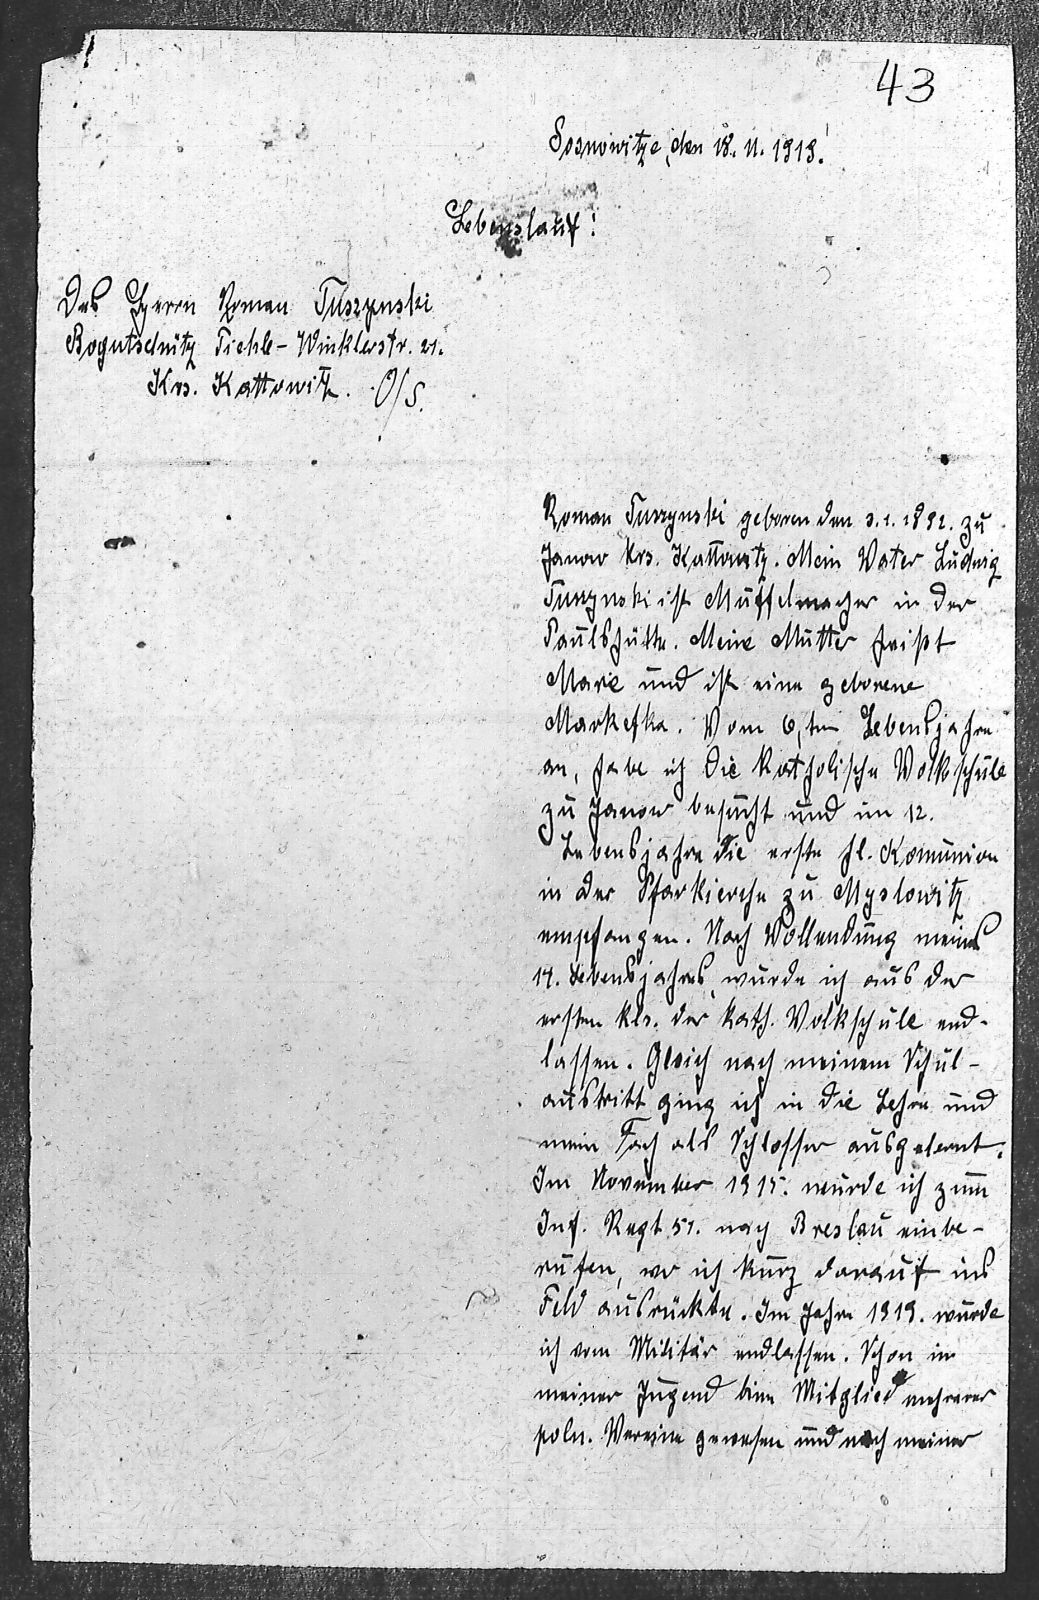 43
Sosnowitze, den 18. 11. 1919.
Lebenslauf!
Des Herrn Roman Tuszynski
Bogutschütz Tiehle-Winklerstr. 21.
Krs. Kattowitz. O/S.
Roman Tuszynski geboren den 3.1.1892. zu
Janow Krs. Kattowitz. Mein Vater Ludwig
Tuszynski ist Muffelmacher in der
Paulshütte. Meine Mutter heißt
Marie und ist eine geborene
Markefka. Vom 6,ten Lebensjahre
an, habe ich die katholische Volkschule
zu Janow besucht und im 12.
Lebensjahre die erste hl. Komunion
in der Pfarkierche zu Myslowitz
empfangen. Nach Vollendung meines
14. Lebensjahres, wurde ich aus der
ersten Kls. der kath. Volkschule end-
lassen. Gleich nach meinem Schul-
austritt ging ich in die Lehre und
mein Fach als Schlosser ausgelernt.
Im November 1915. wurde ich zum
Inf. Regt 51. nach Breslau einbe-
rufen, wo ich kurz darauf ins
Feld ausrückte. Im Jahre 1919. wurde
ich vom Militär endlassen. Schon in
meiner Jugend bin Mitglied mehrerer
poln. Vereine gewesen und nach meiner